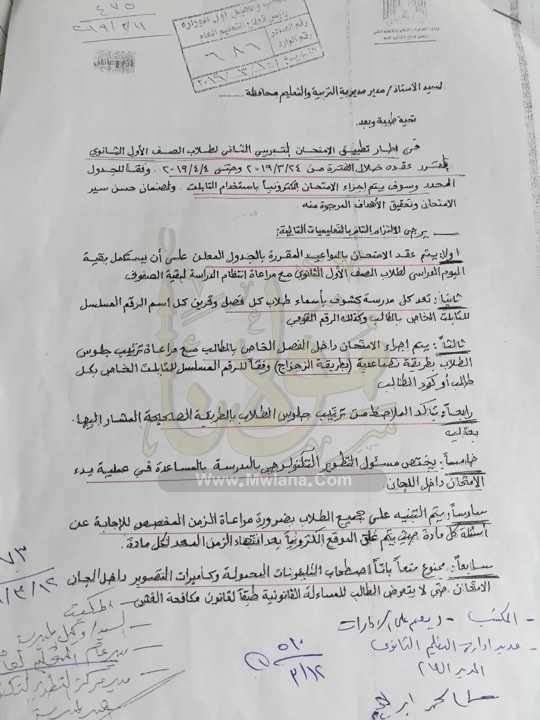 ٤٧٥
٢٠١٩/٣/١١
رقم الصادر
رقم الوارد ٦٨٦
السيد الاستاذ / مدير مديرية التربية والتعليم محافظة ..........
تحية طيبة وبعد.
فى إطار تطبيق الامتحان التدريبى الثانى لطلاب الصف الأول الثانوى
المقرر عقده خلال الفترة من ٢٠١٩/٣/٢٤ وحتى ٢٠١٩/٤/٤ . وفقاً للجدول
المحدد وسوف يتم إجراء الامتحان إلكترونياً باستخدام التابلت ولضمان حسن سير
الامتحان وتحقيق الأهداف المرجوة منه
يرجى الالتزام التام بالتعليمات التالية:
اولاً: يتم عقد الامتحان بالمواعيد المقررة بالجدول المعلن على أن يستكمل بقية
اليوم الدراسى لطلاب الصف الأول الثانوى مع مراعاة انتظام الدراسة لبقية الصفوف
ثانياً: تعد كل مدرسة كشوف بأسماء طلاب كل فصل وقرين كل اسم الرقم المسلسل
للتابلت الخاص بالطالب وكذلك الرقم القومى
ثالثاً: يتم إجراء الامتحان داخل الفصل الخاص بالطالب مع مراعاة ترتيب جلوس
الطلاب بطريقة تصاعدية (بطريقة الزجزاج) وفقاً للرقم المسلسل للتابلت الخاص بكل
طالب أو كود الطالب
رابعاً: يتأكد الملاحظ من ترتيب جلوس الطلاب بالطريقة الصحيحة المشار إليها.
بعاليه
خامساً: يختص مسئول التطوير التكنولوجى بالمدرسة بالمساعدة فى عملية بدء
الامتحان داخل اللجان
سادساً: يتم التنبيه على جميع الطلاب بضرورة مراعاة الزمن المخصص للإجابة عن
أسئلة كل مادة حيث يتم غلق الموقع إلكترونياً بعد انتهاء الزمن المعد لكل مادة.
سابعاً: ممنوع منعاً باتاً اصطحاب التليفونات المحمولة وكاميرات التصوير داخل لجان
الامتحان. حتى لا يتعرض الطالب للمساءلة القانونية طبقاً لقانون مكافحة الغش
www.Mwlana.Com